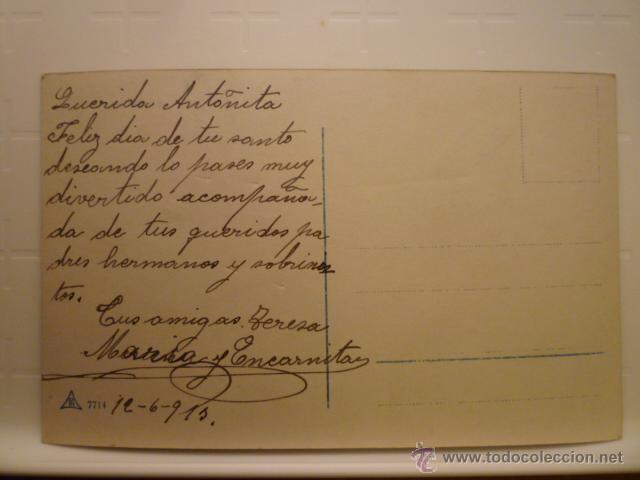 Querida Antoñita
Feliz dia de tu santo
deseando lo pases muy
divertido acompaña-
da de tus queridos pa
dres hermanos y sobrini
tos.
Tus amigas Teresa
Maria y Encarnita
7714 12-6-913.
© www.todocoleccion.net